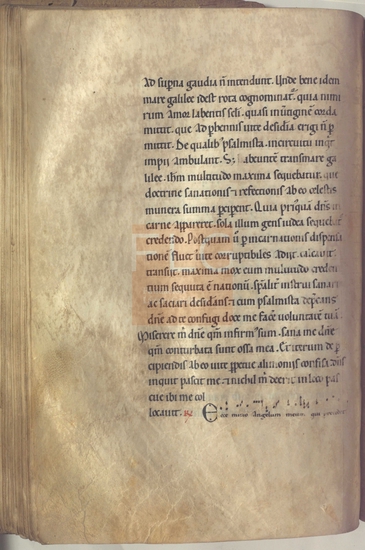 Ad supna gaudia ñ intendunt. Unde bene idem
mare galilee idest rota cognominat᷒. quia nimi
rum Amor labentis scli. quasi in uertigine corda
mittit. que Ad phennis uite desidia erigi ñ p
mittit. De qualib᷒ psalmista. in circuitu inqt
impii Ambulant. S; abeunte transmare ga
lilee. ihm multitudo maxima sequebatur. que
doctrine sanationis ⁊ refectionis Ab eo celestis
munera summa perciperet. Quia priusqua dns in
carne Appareret. sola illum gens iudea sequebat᷒
credendo. Postquam u p incarnationis dispensa
tione fluct᷒ uite corruptibilis Adiit. calcauit.
transiit. maxima mox eum multitudo creden
tium sequuta ē nationū. spalit᷒ instrui sanari
ac saciari desidans ⁊ cum psalmista depcans
dñe ad te confugi doce me facē uoluntatē tuā
Miserere m̄ dñe qm̄ infirm᷒ sum. sana me dñe
qm̄ conturbata sunt ossa mea. Et iterum de p
cipiendis Ab eo uite ppetue alimoniis confisa dn̄s
inquit pascit me ⁊ nichil m̄ deerit in loco pas
cue ibi me col
locauit. R᷒ Ecce mitto Angelum meum. qui